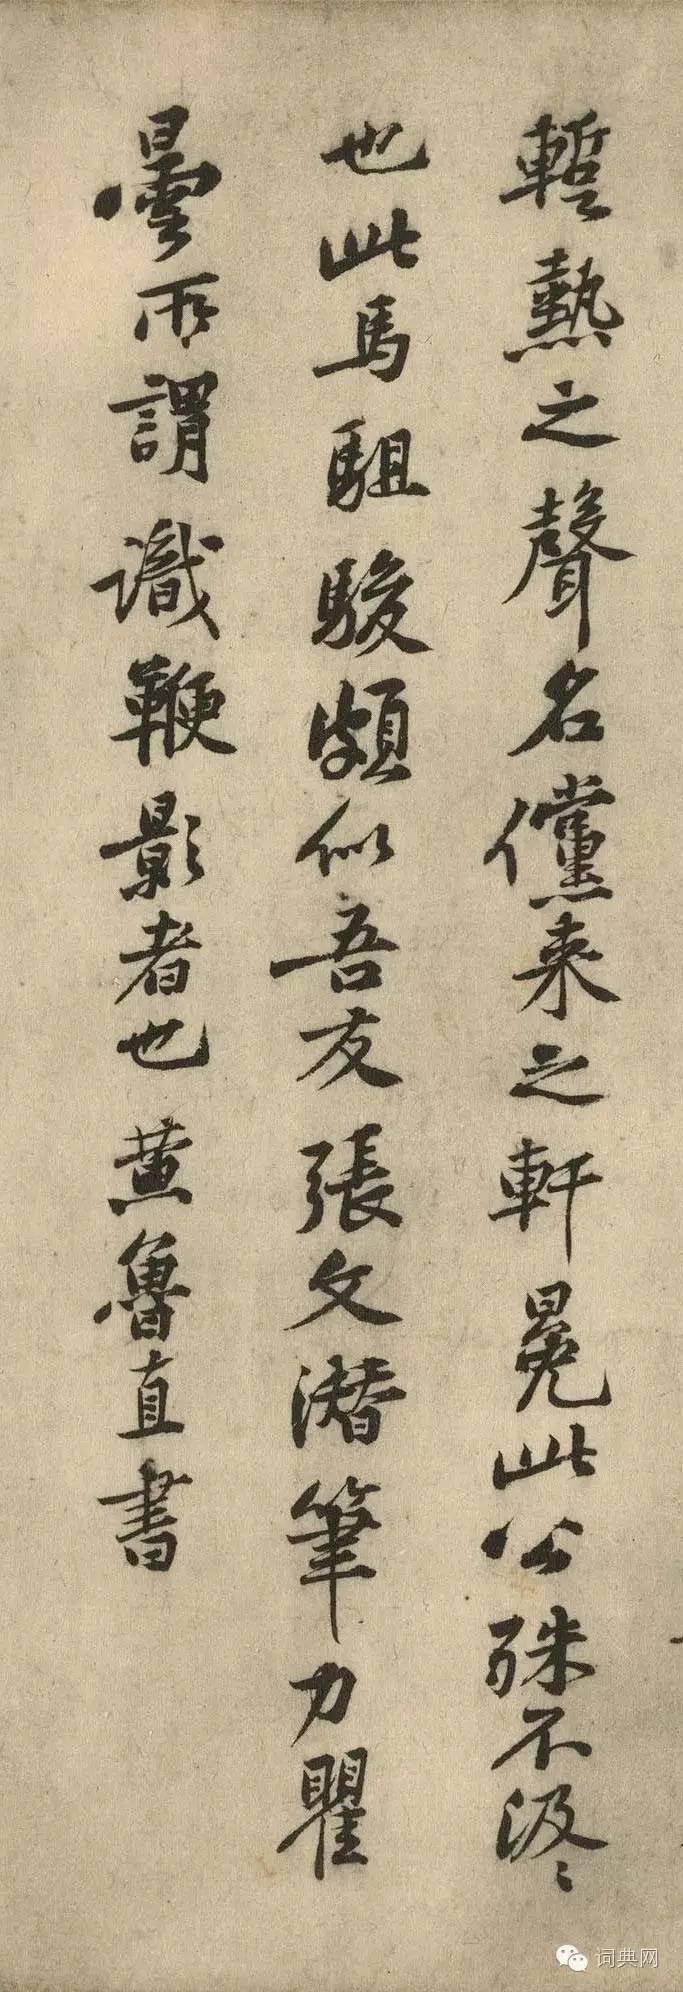 暫熱之聲名儻来之軒冕此公殊不汲〻
也此馬駔駿頗似吾友張文潛筆力瞿
曇所謂識鞭影者也黄魯直書
词典网